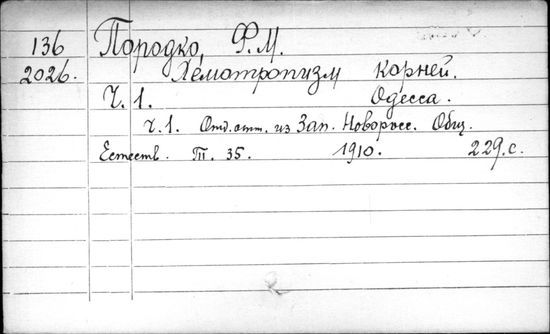 136 Породко, Ф. М.
2026. Хемотропизм корней.
Ч. 1. Одесса.
ч. 1. Отд. отт. из Зап. Новоросс. Общ.
Естеств. Т. 35. 1910. 229 с.